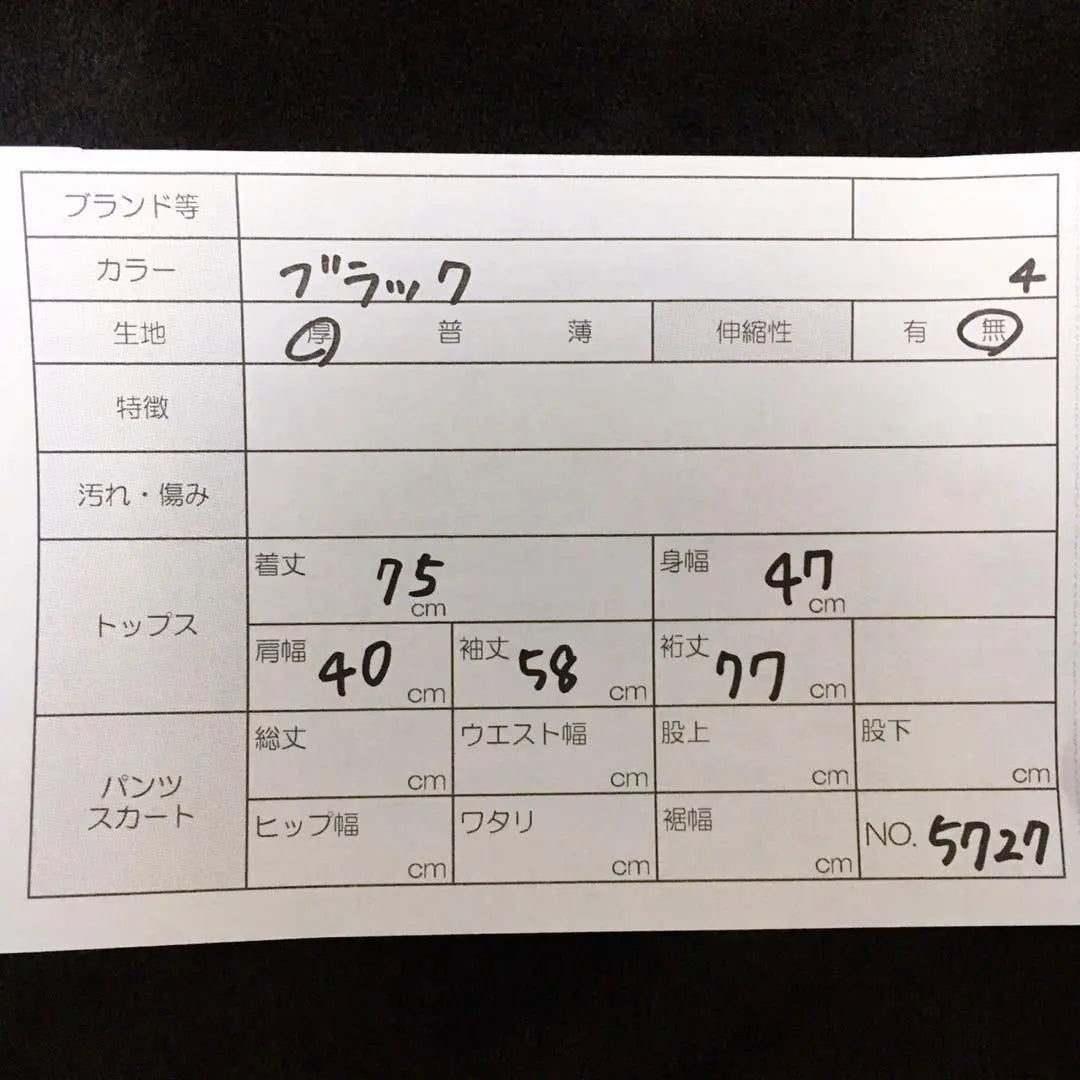 ブランド等
カラー ブラック 4
生地 厚 普 薄 伸縮性 有 無
特徴
汚れ・傷み
トップス
着丈 75 cm 身幅 47 cm
肩幅 40 cm 袖丈 58 cm 裄丈 77 cm
パンツ
スカート
総丈 cm ウエスト幅 cm 股上 cm 股下 cm
ヒップ幅 cm ワタリ cm 裾幅 cm NO. 5727